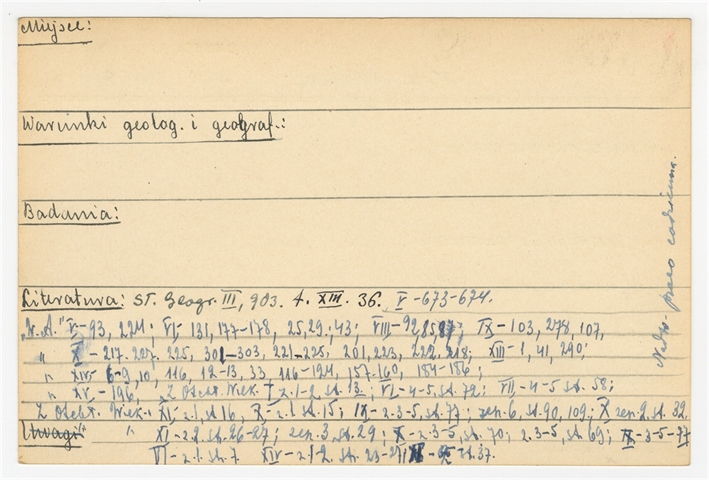 Miejsce:
Warunki geolog. i geograf.:
Badania:
Literatura: St. Geogr. III, 903. A. XIII. 36. V-673-674.
"W.A." V-93, 224; VI-131, 177-178, 25, 29, 43; VIII-92 85 87; IX-103, 278, 107,
" X-217. 227. 225, 301-303, 221-225. 201, 223, 222, 218; XIII-1, 41, 290;
" XIV-6-9, 10, 116, 12-13, 33, 116-124, 157-160, 184-186;
" XV-196, "Z Otchł. Wiek." z. 1-2 st. 13.; VI-4-5, st. 72; VII-4-5 st. 58;
Z Otchł. Wiek.: XI-z.1. st 16, X-z.1 st. 15; IX-z.3-5, st. 77; zesz. 6, st. 90, 109; X zesz. 2. st. 32.
Uwagi: " XI-z.2. st. 26-27; zesz. 3, st. 29; X-z.3-5, st. 70; z.3-5, st. 69; IX-3-5-77
VI-z.1. st. 7 XIV-z.1-2. st. 23- st. 37.